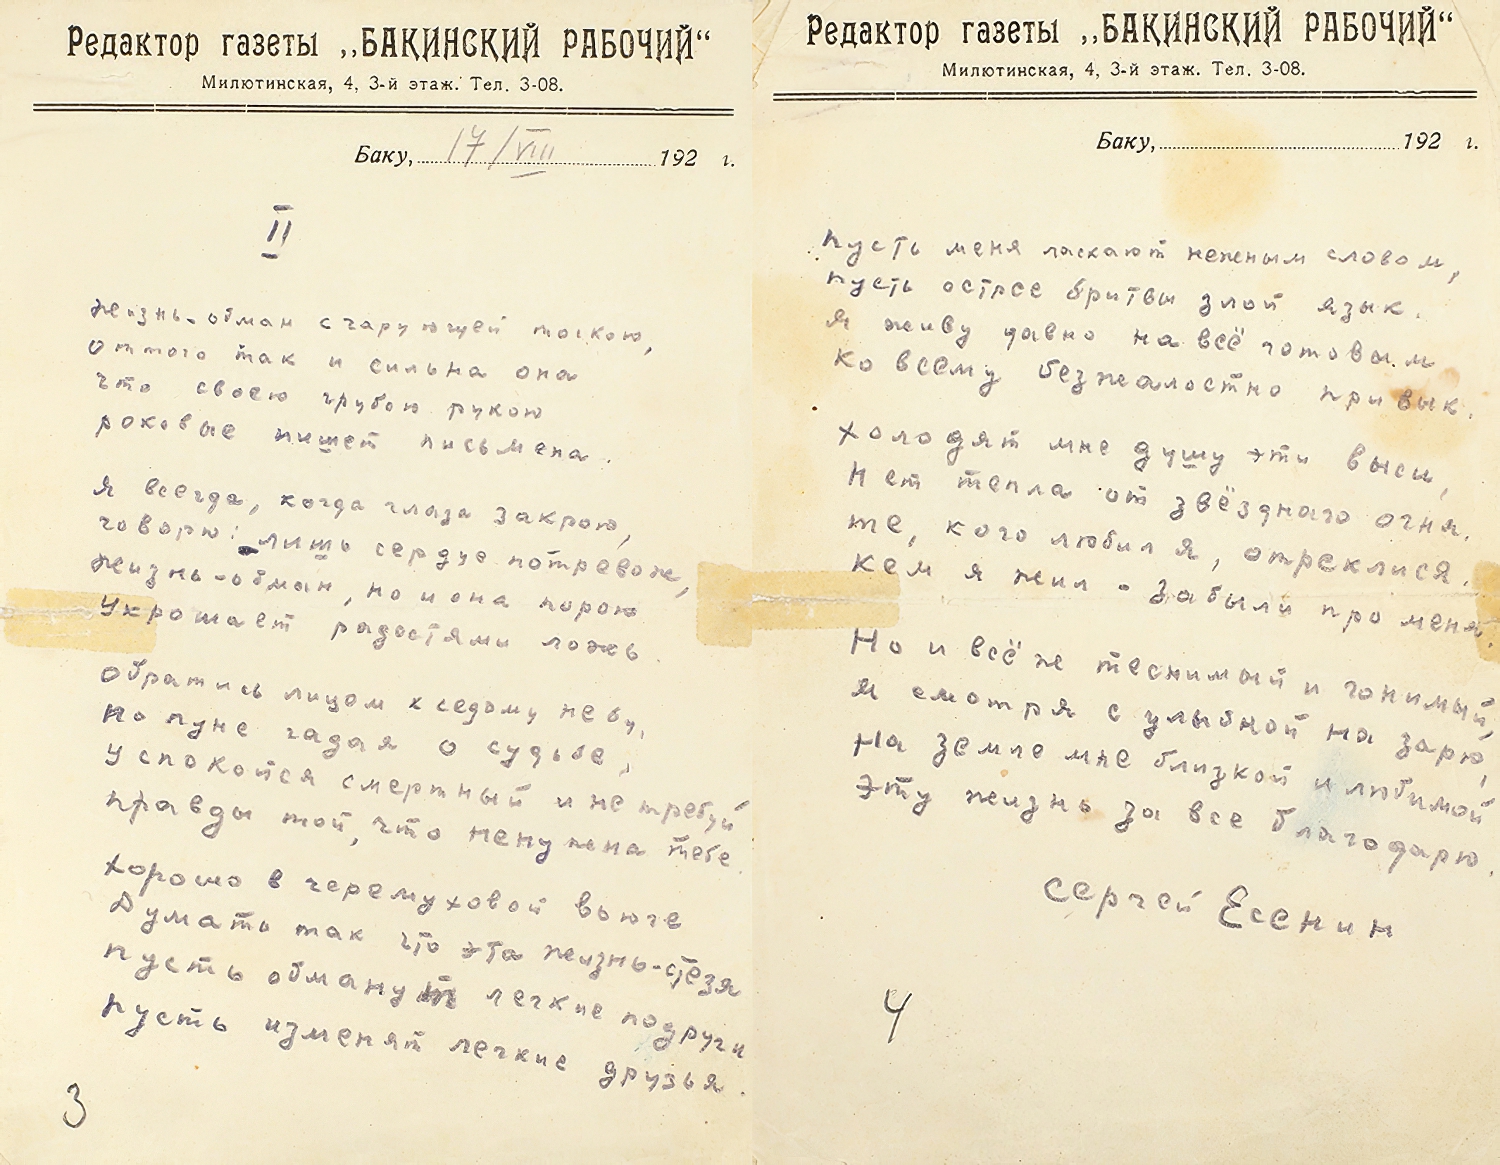 Редактор газеты „БАКИНСКИЙ РАБОЧИЙ“
Милютинская, 4, 3-й этаж. Тел. 3-08.
Баку, 17/VIII 192 г.
II
Жизнь-обман с чарующей тоскою,
оттого так и сильна она
что своею грубою рукою
роковые пишет письмена.
Я всегда, когда глаза закрою,
говорю: лишь сердце потревожь,
жизнь-обман, но и она порою
Украшает радостями ложь.
Обратись лицом к седому небу,
По луне гадая о судьбе,
Успокойся смертный и не требуй
правды той, что ненужна тебе.
Хорошо в черемуховой вьюге
Думать так что эта жизнь-стезя
Пусть обманут легкие подруги
Пусть изменят легкие друзья.
3
Редактор газеты „БАКИНСКИЙ РАБОЧИЙ“
Милютинская, 4, 3-й этаж. Тел. 3-08.
Баку, 192 г.
Пусть меня ласкают нежным словом,
Пусть острее бритвы злой язык.
Я живу давно на всё готовым
Ко всему безжалостно привык.
Холодят мне душу эти выси,
Нет тепла от звёздного огня.
те, кого любил я, отреклися.
Кем я жил - забыли про меня.
Но и всё ж теснимый и гонимый,
Я смотря с улыбкой на зарю,
На земле мне близкой и любимой
Эту жизнь за все благодарю.
Сергей Есенин
4